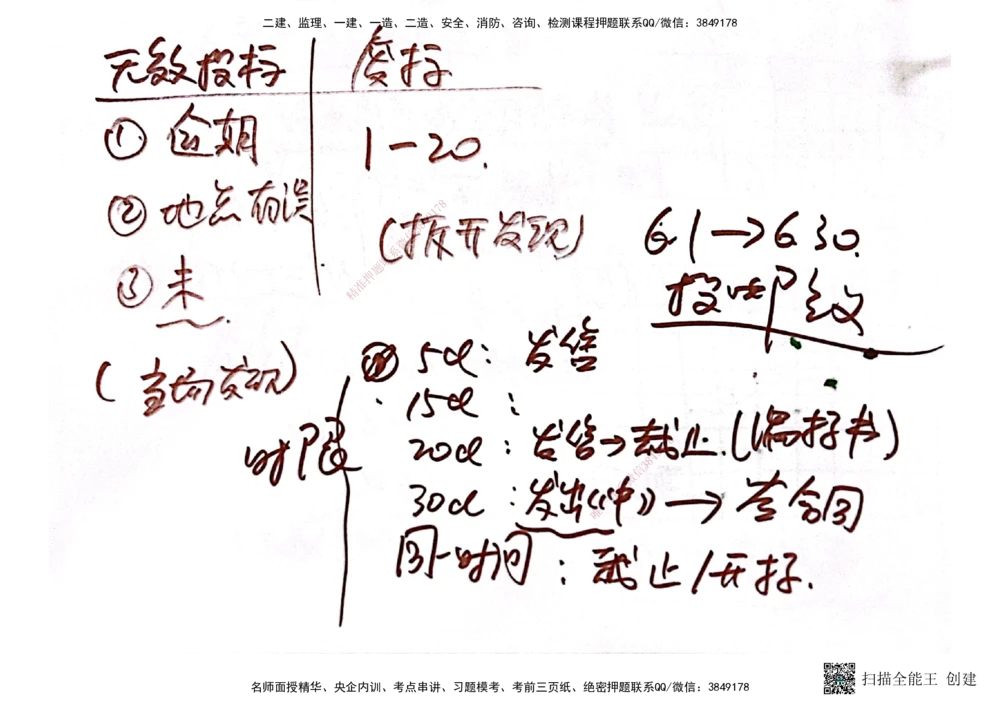 二建、监理、一建、一造、二造、安全、消防、咨询、检测课程押题联系QQ/微信：3849178
无效投标 废标
① 逾期 1—20.
② 地点有误
(拆开发现)
6.1→6.30.
③ 未
投 阶段
(当场发现)
时限
5d: 发售
15d:
20d: 发售→截止.(编标书)
30d: 发出《中》→签合同
同一时间: 截止/开标.
名师面授精华、央企内训、考点串讲、习题模考、考前三页纸、绝密押题联系QQ/微信：3849178
扫描全能王 创建